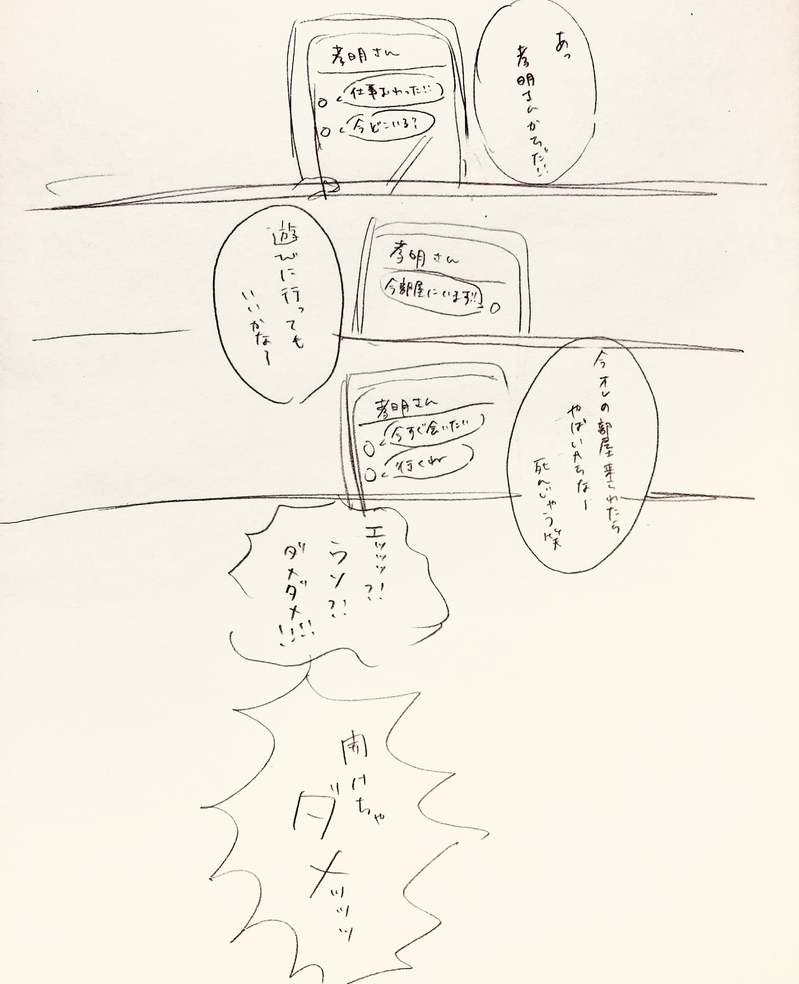 あっ
孝明さんからだ!!
孝明さん
仕事おわった!!
今どこいる?
孝明さん
今部屋にいます!!
遊びに行っても
いいかな〜
今オレの部屋来られたら
やばいからな〜
死んじゃう笑
孝明さん
今すぐ会いたい
行くね
エッッッ?!
ウソ?!
ダメダメ!!!!
開けちゃ
ダメッッッ